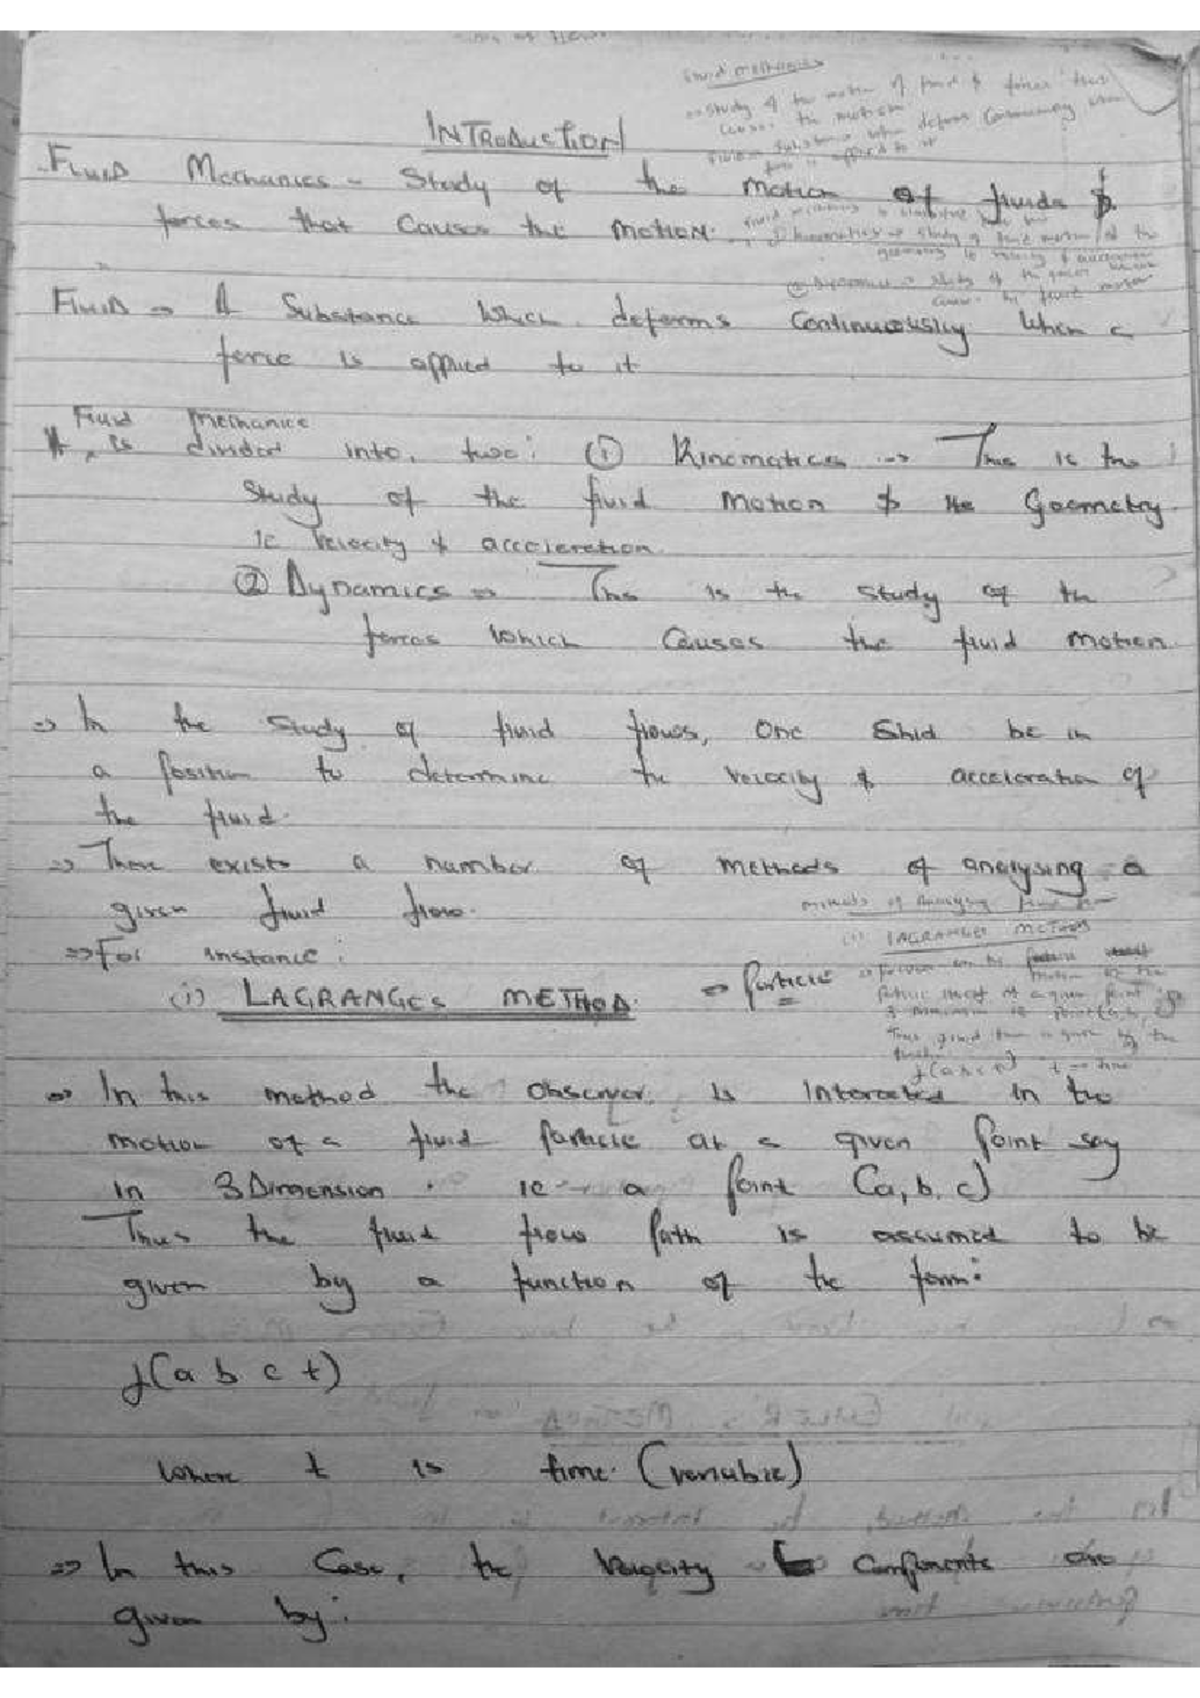 Fluid mechanics
⇒ study of the motion of fluid & forces that
cause the motion
substance which deforms continuously when
force is applied to it
INTRODUCTION
Fluid Mechanics - Study of the motion of fluids &
forces that causes the motion.
① kinematics ⇒ study of fluid motion & the
geometry ie velocity & acceleration
② Dynamics ⇒ study of the forces which
cause the fluid motion
Fluid ⇒ A Substance which deforms continuously when a
force is applied to it
Fluid mechanics
It, is divided into, two: ① Kinematics --> This is the
Study of the fluid motion & the Geometry
ie velocity & acceleration.
② Dynamics ⇒ This is the study of the
forces which causes the fluid motion.
⇒ In the study of fluid flows, one shld be in
a position to determine the velocity & acceleration of
the fluid.
⇒ There exists a number of methods of analysing a
given fluid flow.
methods of analysing fluid flow
⇒ For instance:
(i) LAGRANGES METHOD
(i) LAGRANGEs METHOD. ⇒ Particle
f(a b c t) t → time
⇒ In this method the observer is interested in the
motion of a fluid particle at a given point say
in 3Dimension. ie → a point (a, b, c)
Thus the fluid flow path is assumed to be
given by a function of the form:
f(a b c t)
where t is time. (variable)
⇒ In this case, the velocity components are
given by: